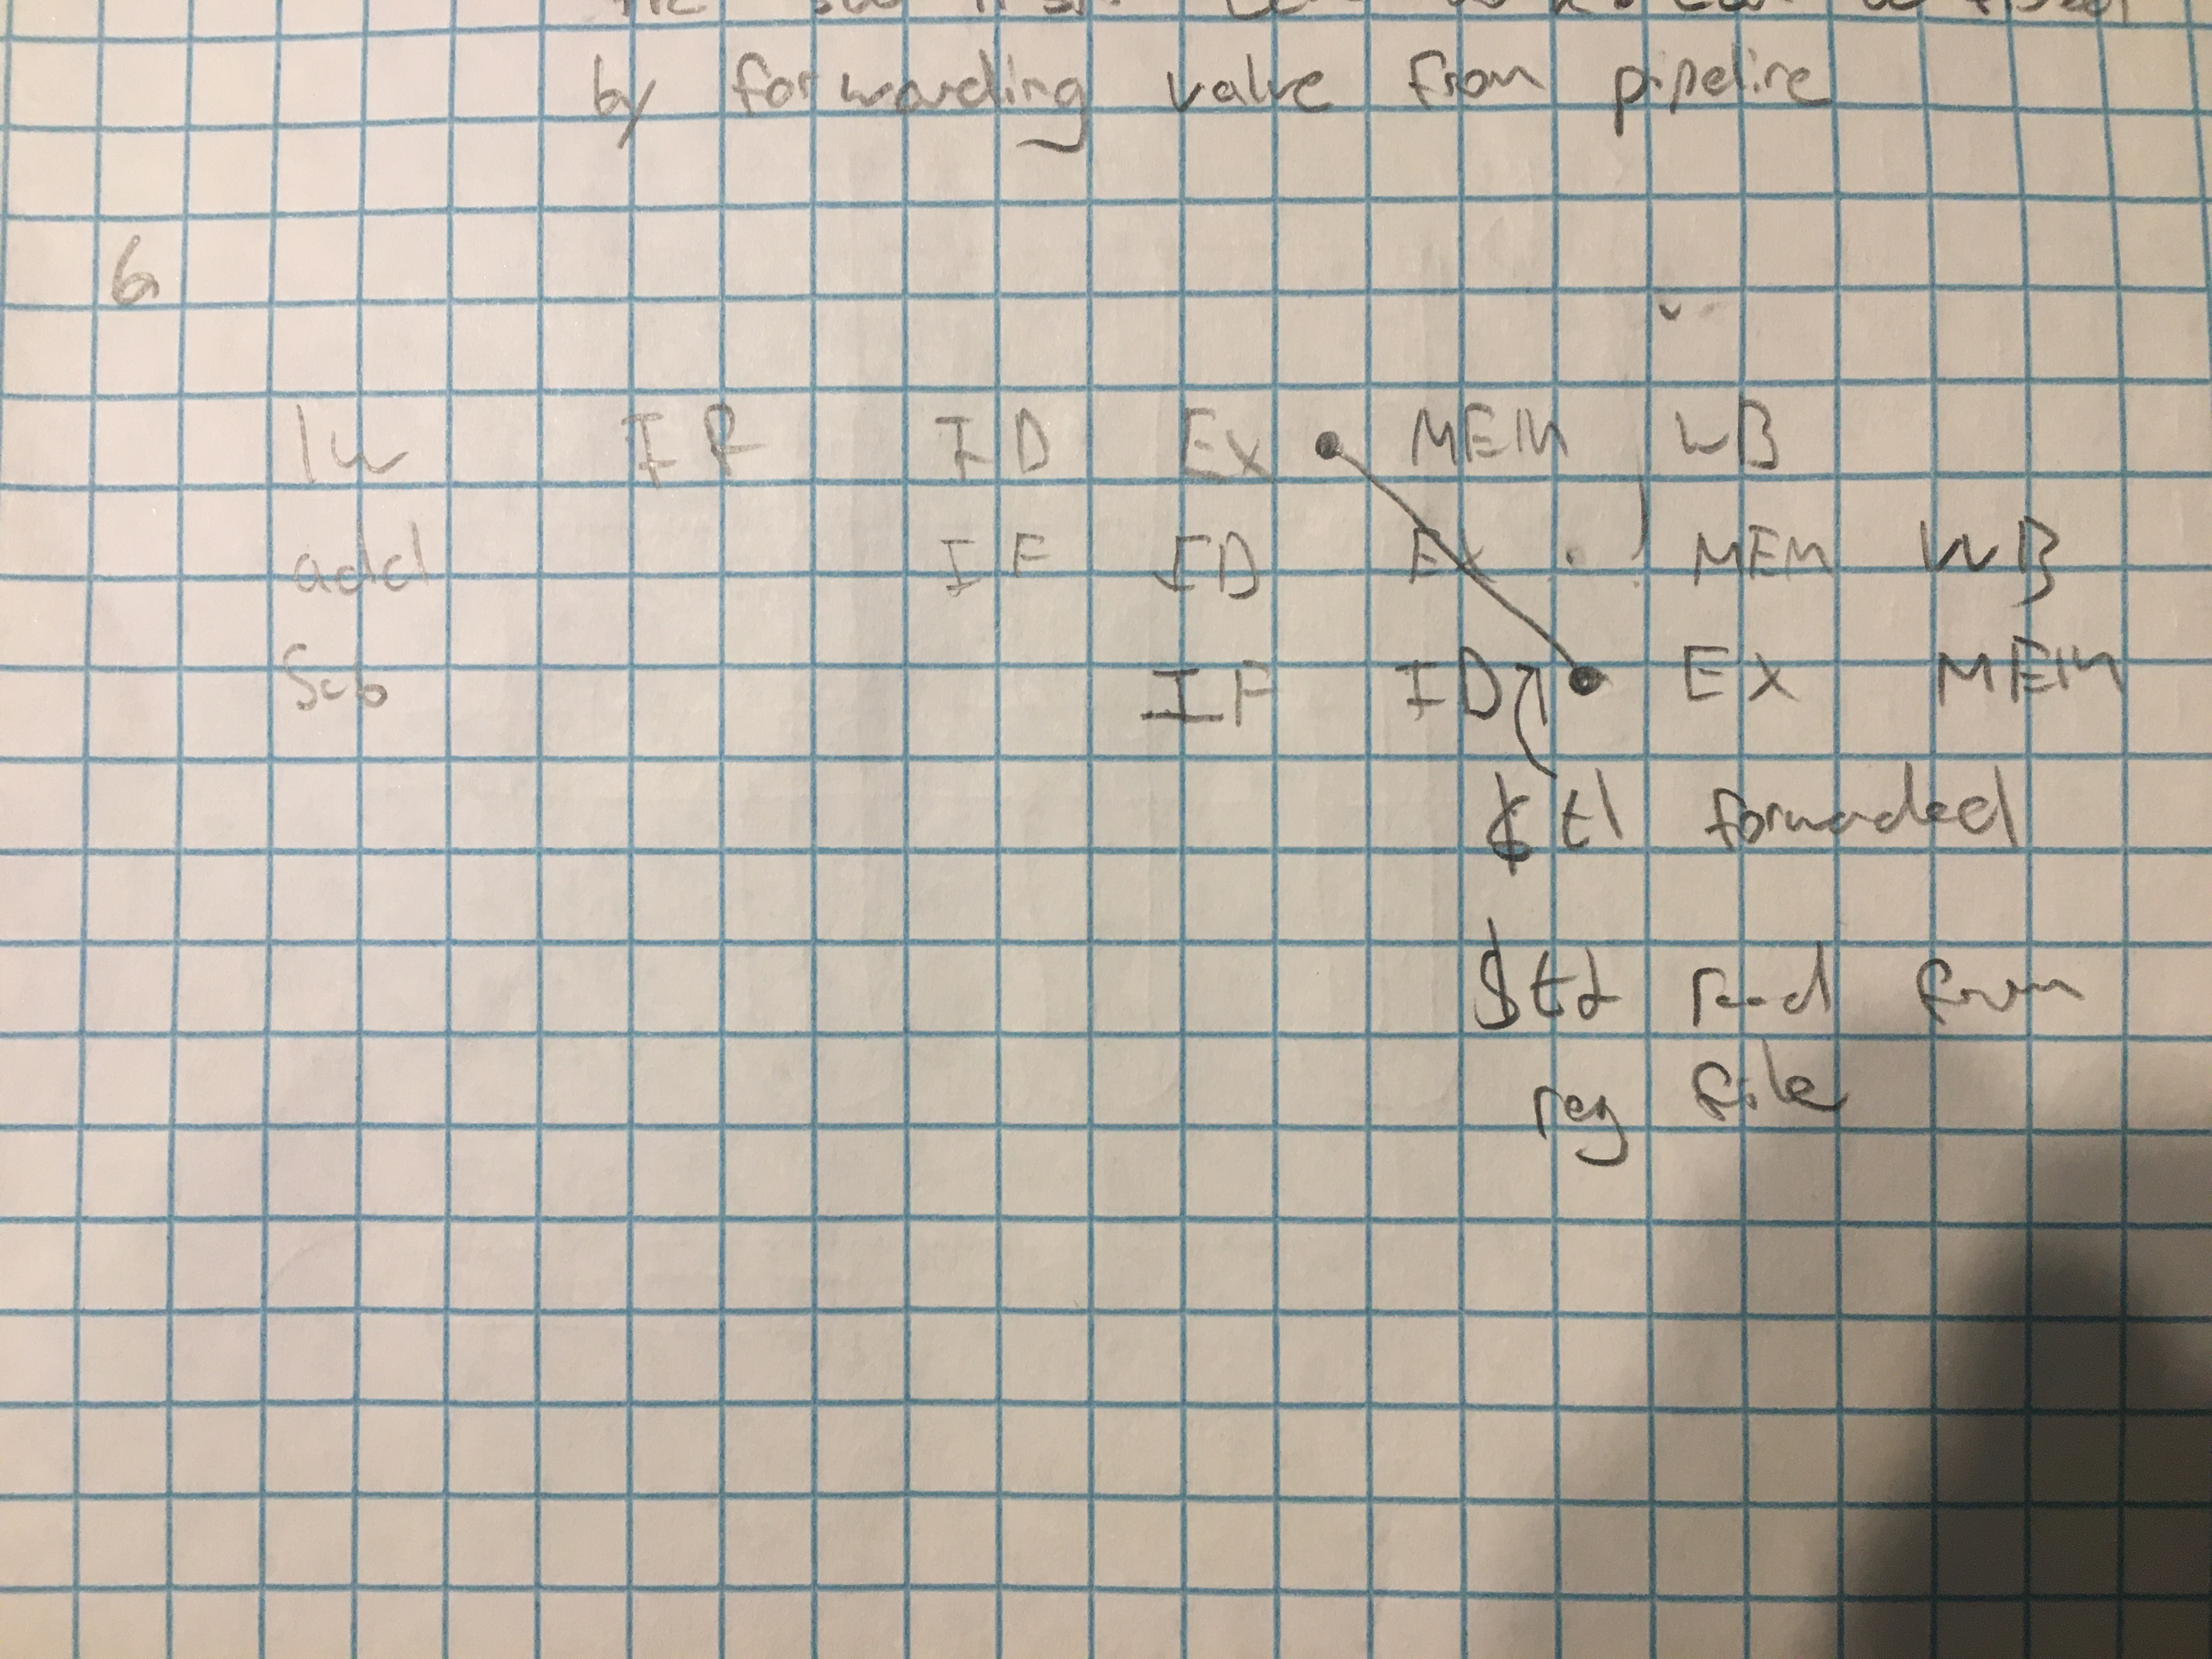 by forwarding value from pipeline
6
lw IF ID EX MEM WB
add IF ID EX MEM WB
sub IF ID EX MEM
$t1 forwarded
read from
reg file